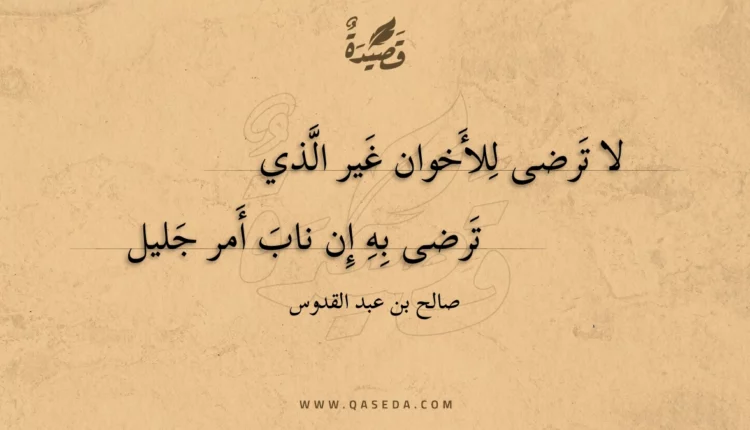 قَصِيدَةٌ
لا تَرضى لِلأَخوان غَير الَّذي
تَرضى بِهِ إِن نابَ أَمر جَليل
صالح بن عبد القدوس
WWW.QASEDA.COM